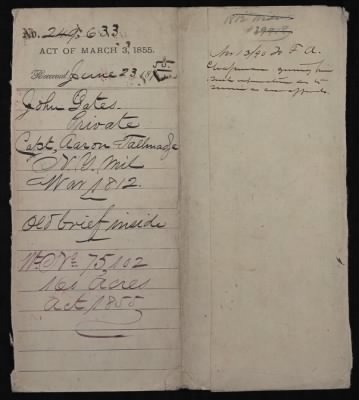 No. 249,633
ACT OF MARCH 3, 1855.
Received June 23, 1855
John Gates.
Private
Capt, Aaron Tallmadge
N.Y. Mil
War 1812.
Old brief inside
Wt. No. 75102
160 Acres
Act 1855
Nov 13/90 To F. A.
Chapman giving him